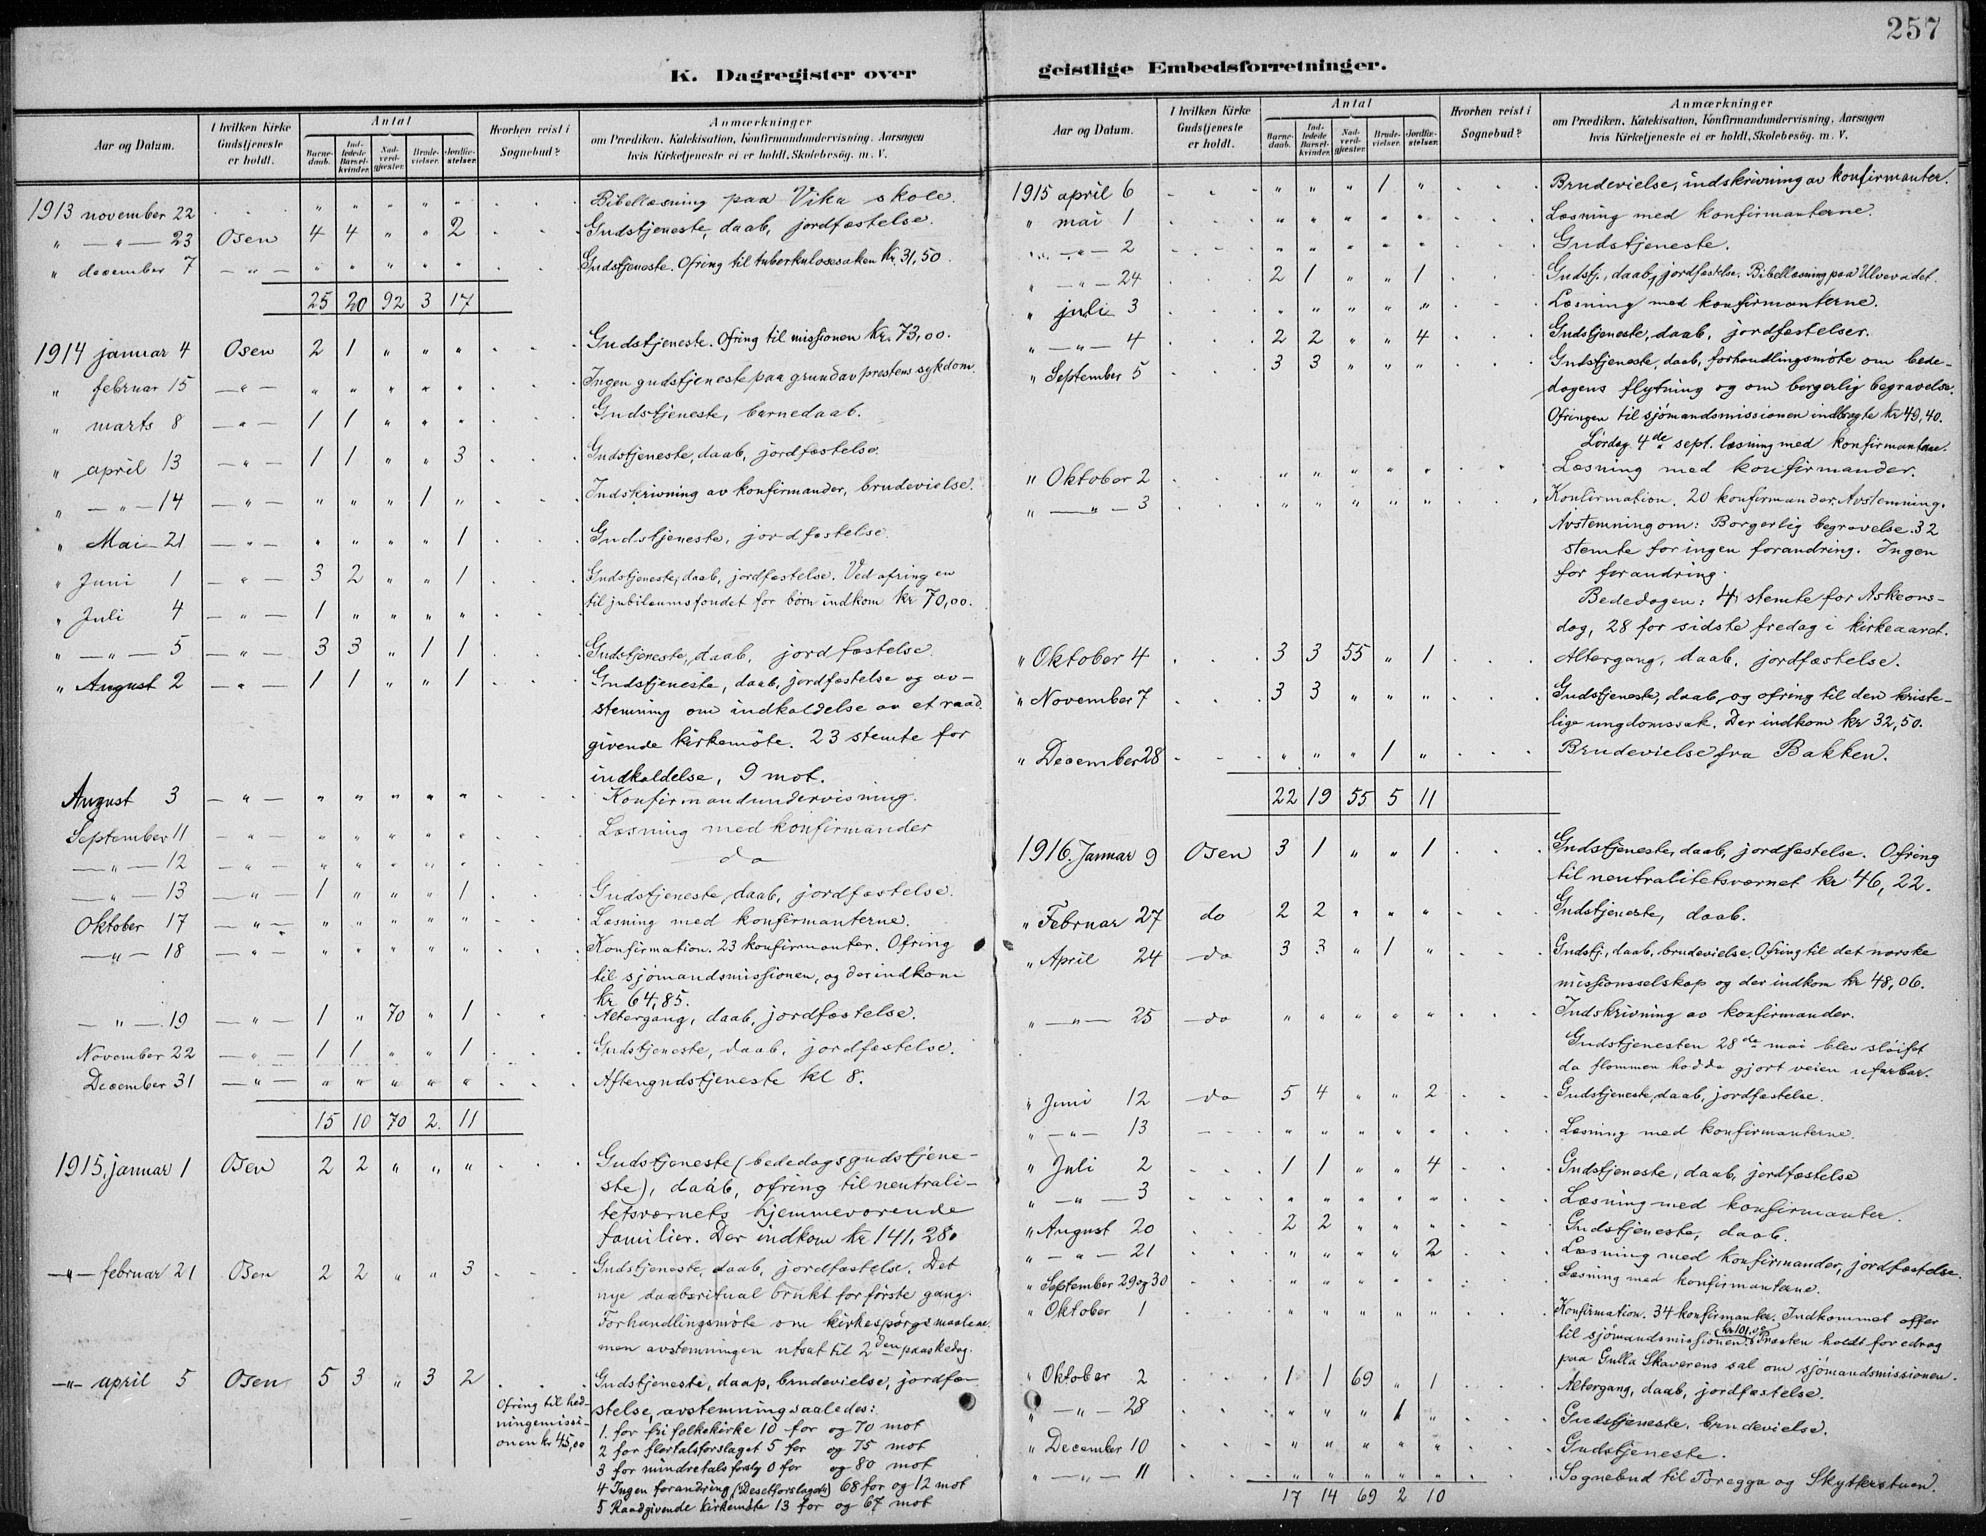 257
K. Dagregister over geistlige Embedsforretninger.
Aar og Datum. I hvilken Kirke Gudstjeneste er holdt. Antal Barnedaab. Indledede Barselkvinder. Nadverdgjæster. Brudevielser. Jordfæstelser. Hvorhen reist i Sognebud? Anmærkninger om Prædiken. Katekisation, Konfirmandundervisning. Aarsagen hvis Kirketjeneste ei er holdt. Skolebesög. m. V.
1913 november 22 . . . " " " " " . . . Bibellæsning paa Vika skole.
" — " — 23 Osen 4 4 " " 2 . . . Gudstjeneste, daab, jordfæstelse.
" december 7 — " — " " " " " . . Gudstjeneste. Ofring til tuberkulosesaken kr. 31,50
25 20 92 3 17
1914 januar 4 Osen 2 1 " " " . . . Gudstjeneste. Ofring til missionen kr. 73,00.
" februar 15 — " — " " " " " . . . Ingen gudstjeneste paa grund av prestens sykdom.
" marts 8 — " — 1 1 " " " . . . Gudstjeneste, barnedaab.
" april 13 — " — 1 1 " " 3 . . . Gudstjeneste, daab, jordfæstelse.
" — " — 14 — " — " " " 1 " . . . Indskrivning av konfirmander, brudevielse.
" Mai 21 — " — " " " " 1 . . . Gudstjeneste, jordfæstelse.
" Juni 1 — " — 3 2 " " 1 . . . Gudstjeneste, daab, jordfæstelse. Ved ofring en
" Juli 4 — " — 1 " " " " . . . til jubilæumsfondet for børn indkom kr 70,00.
" — " — 5 — " — 3 3 " 1 1 . . . Gudstjeneste, daab, jordfæstelse.
" August 2 — " — 1 1 " " 1 . . . Gudstjeneste, daab, jordfæstelse og av-
stemning om indkaldelse av et raad
givende kirkemöte. 23 stemte for
indkaldelse, 9 mot.
August 3 — " — " " " " " . . . Konfirmandundervisning.
September 11 — " — " " " " " . . . Læsning med konfirmander
— " — 12 — " — " " " " " . . . do
— " — 13 — " — 1 " " " 1 . . . Gudstjeneste, daab, jordfæstelse.
Oktober 17 — " — " " " " " . . . Læsning med konfirmanterne.
— " — 18 — " — " " " " " . . . Konfirmation. 23 konfirmanter. Ofring
til sjömandsmissionen, og der indkom
kr 64,85.
— " — 19 — " — 1 " 70 " 1 . . Altergang, daab, jordfæstelse.
November 22 — " — 1 1 " " 1 . . . Gudstjeneste, daab, jordfæstelse.
December 31 — " — " " " " " . . . Aftengudstjeneste kl 8.
15 10 70 2. 11
1915. januar 1 Osen 2 2 " " " . . . Gudstjeneste (bededagsgudstjene-
ste), daab, ofring til neutrali-
tetsværnets hjemmeværende
familier. Der indkom kr 141,28.
— " — februar 21 Osen 2 2 " " 3 . . . Gudstjeneste, daab, jordfæstelse. Det
nye daabsritual brukt for første gang.
Forhandlingsmöte om kirkespörgsmaalene
men avstemningen utsat til 2den paaskedag.
— " — april 5 Osen 5 3 " 3 2 . . . Gudstjeneste, daap, brudevielse, jordfæ-
Ofring til hedningemissionen kr 45,00
stelse, avstemning saaledes:
1. for fri folkekirke 10 for og 70 mot
2 for flertalsforslaget 5 for og 75 mot
3 for mindretals forslg 0 for og 80 mot
4 Ingen forandring 68 for og 12 mot
5 Raadgivende kirkemöte 13 for og 67 mot
Aar og Datum. I hvilken Kirke Gudstjeneste er holdt. Antal Barnedaab. Indledede Barselkvinder. Nadverdgjæster. Brudevielser. Jordfæstelser. Hvorhen reist i Sognebud? Anmærkninger om Prædiken. Katekisation, Konfirmandundervisning. Aarsagen hvis Kirketjeneste ei er holdt. Skolebesög. m. V.
1915 april 6 . . " " " 1 " . . . Brudevielse, indskrivning av konfirmanter.
" mai 1 . . . " " " " " . . . Læsning med konfirmanterne.
" — " — 2 . . . " " " " " . . . Gudstjeneste.
" — " — 24 . . . 2 1 " " 1 . . . Gudstj., daab, jordfæstelse. Bibellæsning paa Ulvevadet.
" juli 3 . . . " " " " " . . . Læsning med konfirmanterne.
" — " — 4 . . . 2 2 " " 4 . . . Gudstjeneste, daab, jordfæstelser.
" September 5 . . . 3 3 " " " . . . Gudstjeneste, daab, forhandlingsmöte om bede-
dagens flytning og om borgerlig begravelse.
Ofringen til sjömandsmissionen indbragte kr 49,40.
Lørdag 4de sept. læsning med konfirmantene.
" Oktober 2 . . . " " " " " . . Læsning med konfirmander.
" — " — 3 . . . " " " " " . . . Konfirmation. 20 konfirmander. Avstemning.
Avstemning om: Borgerlig begravelse. 32
stemte for ingen forandring. Ingen
for forandring.
Bededagen: 4 stemte for Askeons-
dag, 28 for sidste fredag i kirkeaaret.
" Oktober 4 . . . 3 3 55 " 1 . . . Altergang, daab, jordfæstelse.
" November 7 . . . 3 3 " " " . . . Gudstjeneste, daab, og ofring til den kriste-
lige ungdomssak. Der indkom kr 32,50.
" December 28 . . . " " " 1 " . . . Brudevielse fra Bakken.
22 19 55 5 11
1916. Januar 9 Osen 3 1 " " 1 . . . Gudstjeneste, daab, jordfæstelse. Ofring
til neutralitetsværnet kr 46,22.
" Februar 27 do 2 2 " " " . . . Gudstjeneste, daab.
" April 24 do 3 3 " 1 " . . . Gudstj., daab, brudevielse. Ofring til det norske
missionsselskap og der indkom kr 48,06.
" — " — 25 do " " " " " . . . Indskrivning av konfirmander.
Gudstjenesten 28de mai blev slöifet
da flommen hadde gjort veien ufarbar.
" Juni 12 do 5 4 " " 2 . . . Gudstjeneste, daab, jordfæstelse.
" — " — 13 - - - " " " " " . . . Læsning med konfirmanterne.
" Juli 2 . . . 1 1 " " 4 . . . Gudstjeneste, daab, jordfæstelse
" — " — 3 . . . " " " " " . . . Læsning med konfirmanter.
" August 20 . . . 2 2 " " " . . . Gudstjeneste, daab.
" — " — 21 . . . " " " " 2 . . . Læsning med konfirmander, jordfæstelse.
" September 29 og 30 . . " " " " " . . . Læsning med konfirmantene.
" Oktober 1 . . . " " " " " . . . Konfirmation. 34 konfirmanter. Indkommet offer
til sjömandsmissionen kr 101.00 Præsten holdt foredrag
paa Gulla Skaverens sal om sjömandsmissionen.
" Oktober 2 . . . 1 1 69 " 1 . . . Altergang, daab, jordfæstelse.
" — " — 28 . . . " " " 1 " . . . Gudstjeneste, brudevielse.
" December 10 . . . " " " " " . . . Gudstjeneste.
" — " — 11 . . . " " " " " . . . Sognebud til Töregga og Skytterstuen.
17 14 69 2 10